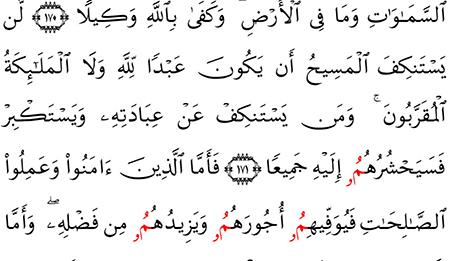 ٱلسَّمَٰوَٰتِ وَمَا فِى ٱلْأَرْضِ ۗ وَكَفَىٰ بِٱللَّهِ وَكِيلًا ١٧٠ لَّن
يَسْتَنكِفَ ٱلْمَسِيحُ أَن يَكُونَ عَبْدًا لِّلَّهِ وَلَا ٱلْمَلَٰٓئِكَةُ
ٱلْمُقَرَّبُونَ ۚ وَمَن يَسْتَنكِفْ عَنْ عِبَادَتِهِۦ وَيَسْتَكْبِرْ
فَسَيَحْشُرُهُمُۥ إِلَيْهِ جَمِيعًا ١٧١ فَأَمَّا ٱلَّذِينَ ءَامَنُوا۟ وَعَمِلُوا۟
ٱلصَّٰلِحَٰتِ فَيُوَفِّيهِمُۥ أُجُورَهُمُۥ وَيَزِيدُهُمُۥ مِن فَضْلِهِۦ ۖ وَأَمَّا